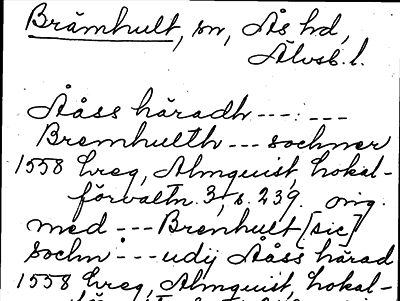 Brämhult, sn, Ås hd,
Älvsb. l.
Ååss häradh ---:---
Bremhulth --- sochner
1558 hreg, Almquist, Lokal-
förvaltn. 3, s. 239. orig.
med --- Brenhult [sic]
sochn --- udij Ååss härad
1558 hreg, Almquist, Lokal-